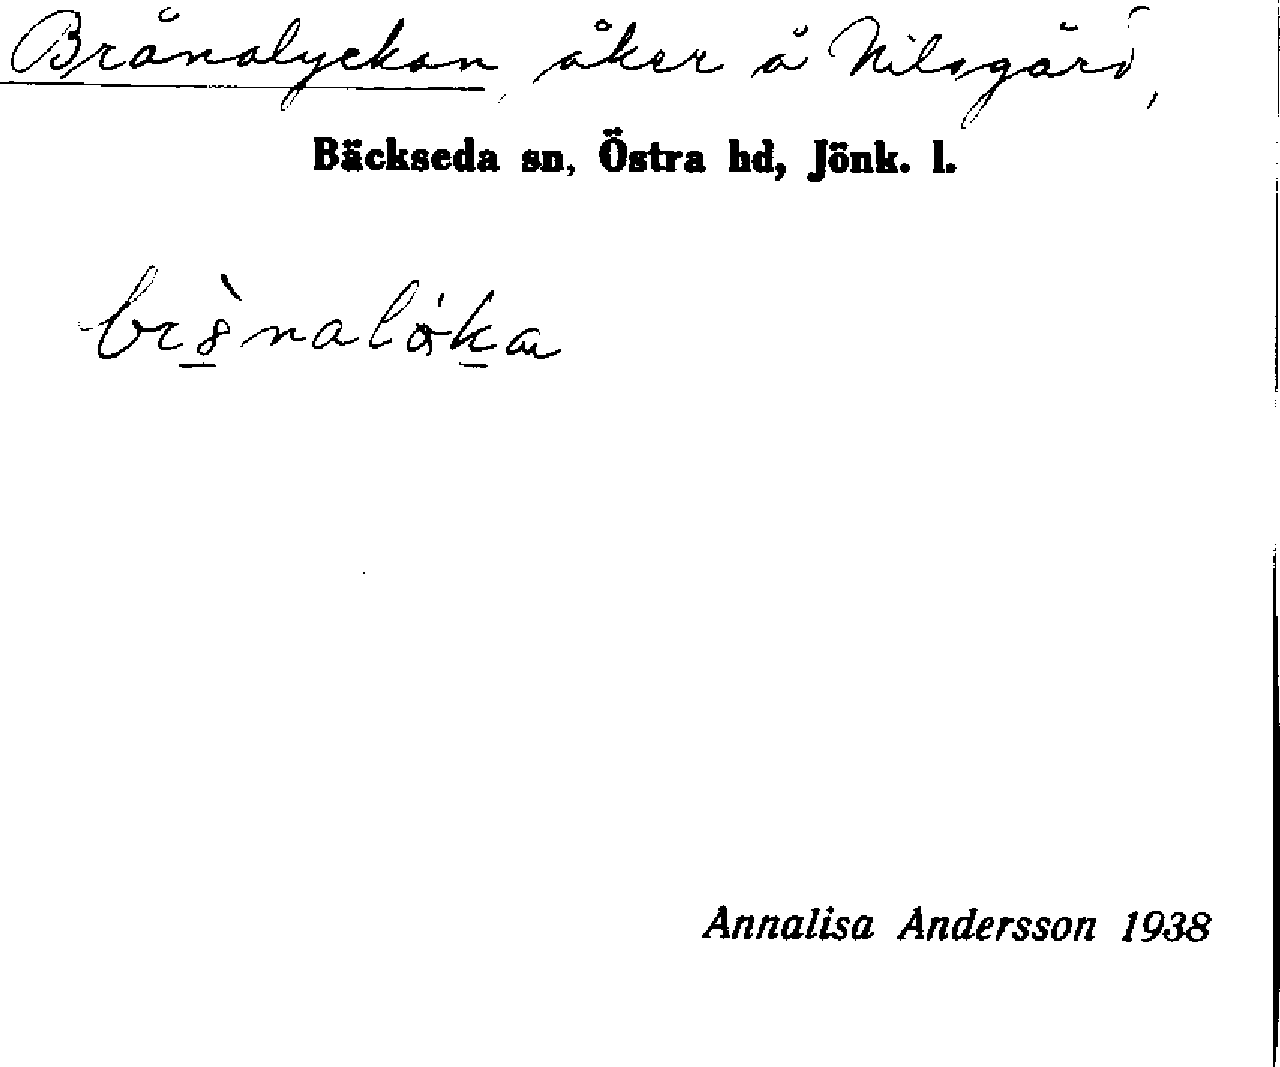 Brånalyckan, åker å Nilsgård,
Bäckseda sn, Östra hd, Jönk. l.
Annalisa Andersson 1938